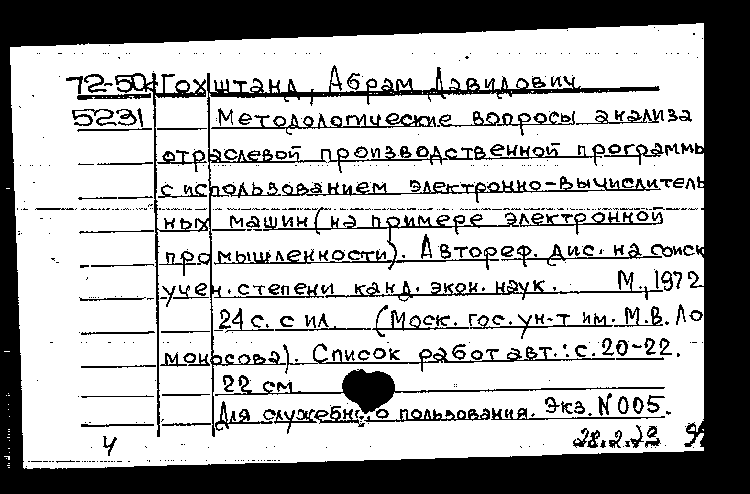 72-50к Гохштанд, Абрам Давидович
5231 Методологические вопросы анализа
отраслевой производственной программы
с использованием электронно-вычислитель
ных машин (на примере электронной
промышленности). Автореф. дис. на соиск
учен. степени канд. экон. наук. М., 1972
24 с. с ил. (Моск. гос. ун-т им. М.В. Ло
моносова). Список работ авт.: с. 20-22.
22 см
Для служебного пользования. Экз. N 005.
4 28.2.73